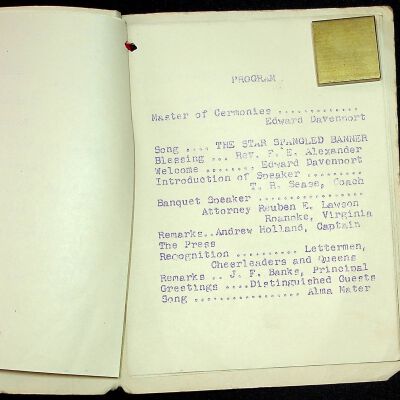 PROGRAM
Master of Cermonies .............
Edward Davenport
Song .... THE STAR SPANGLED BANNER
Blessing ... Rev. F. E. Alexander
Welcome ........ Edward Davenport
Introduction of Speaker .........
T. R. Sease, Coach
Banquet Speaker .................
Attorney Reuben E. Lawson
Roanoke, Virginia
Remarks..Andrew Holland, Captain
The Press
Recognition .......... Lettermen,
Cheerleaders and Queens
Remarks .. J. F. Banks, Principal
Greetings ....Distinguished Guests
Song .................. Alma Mater